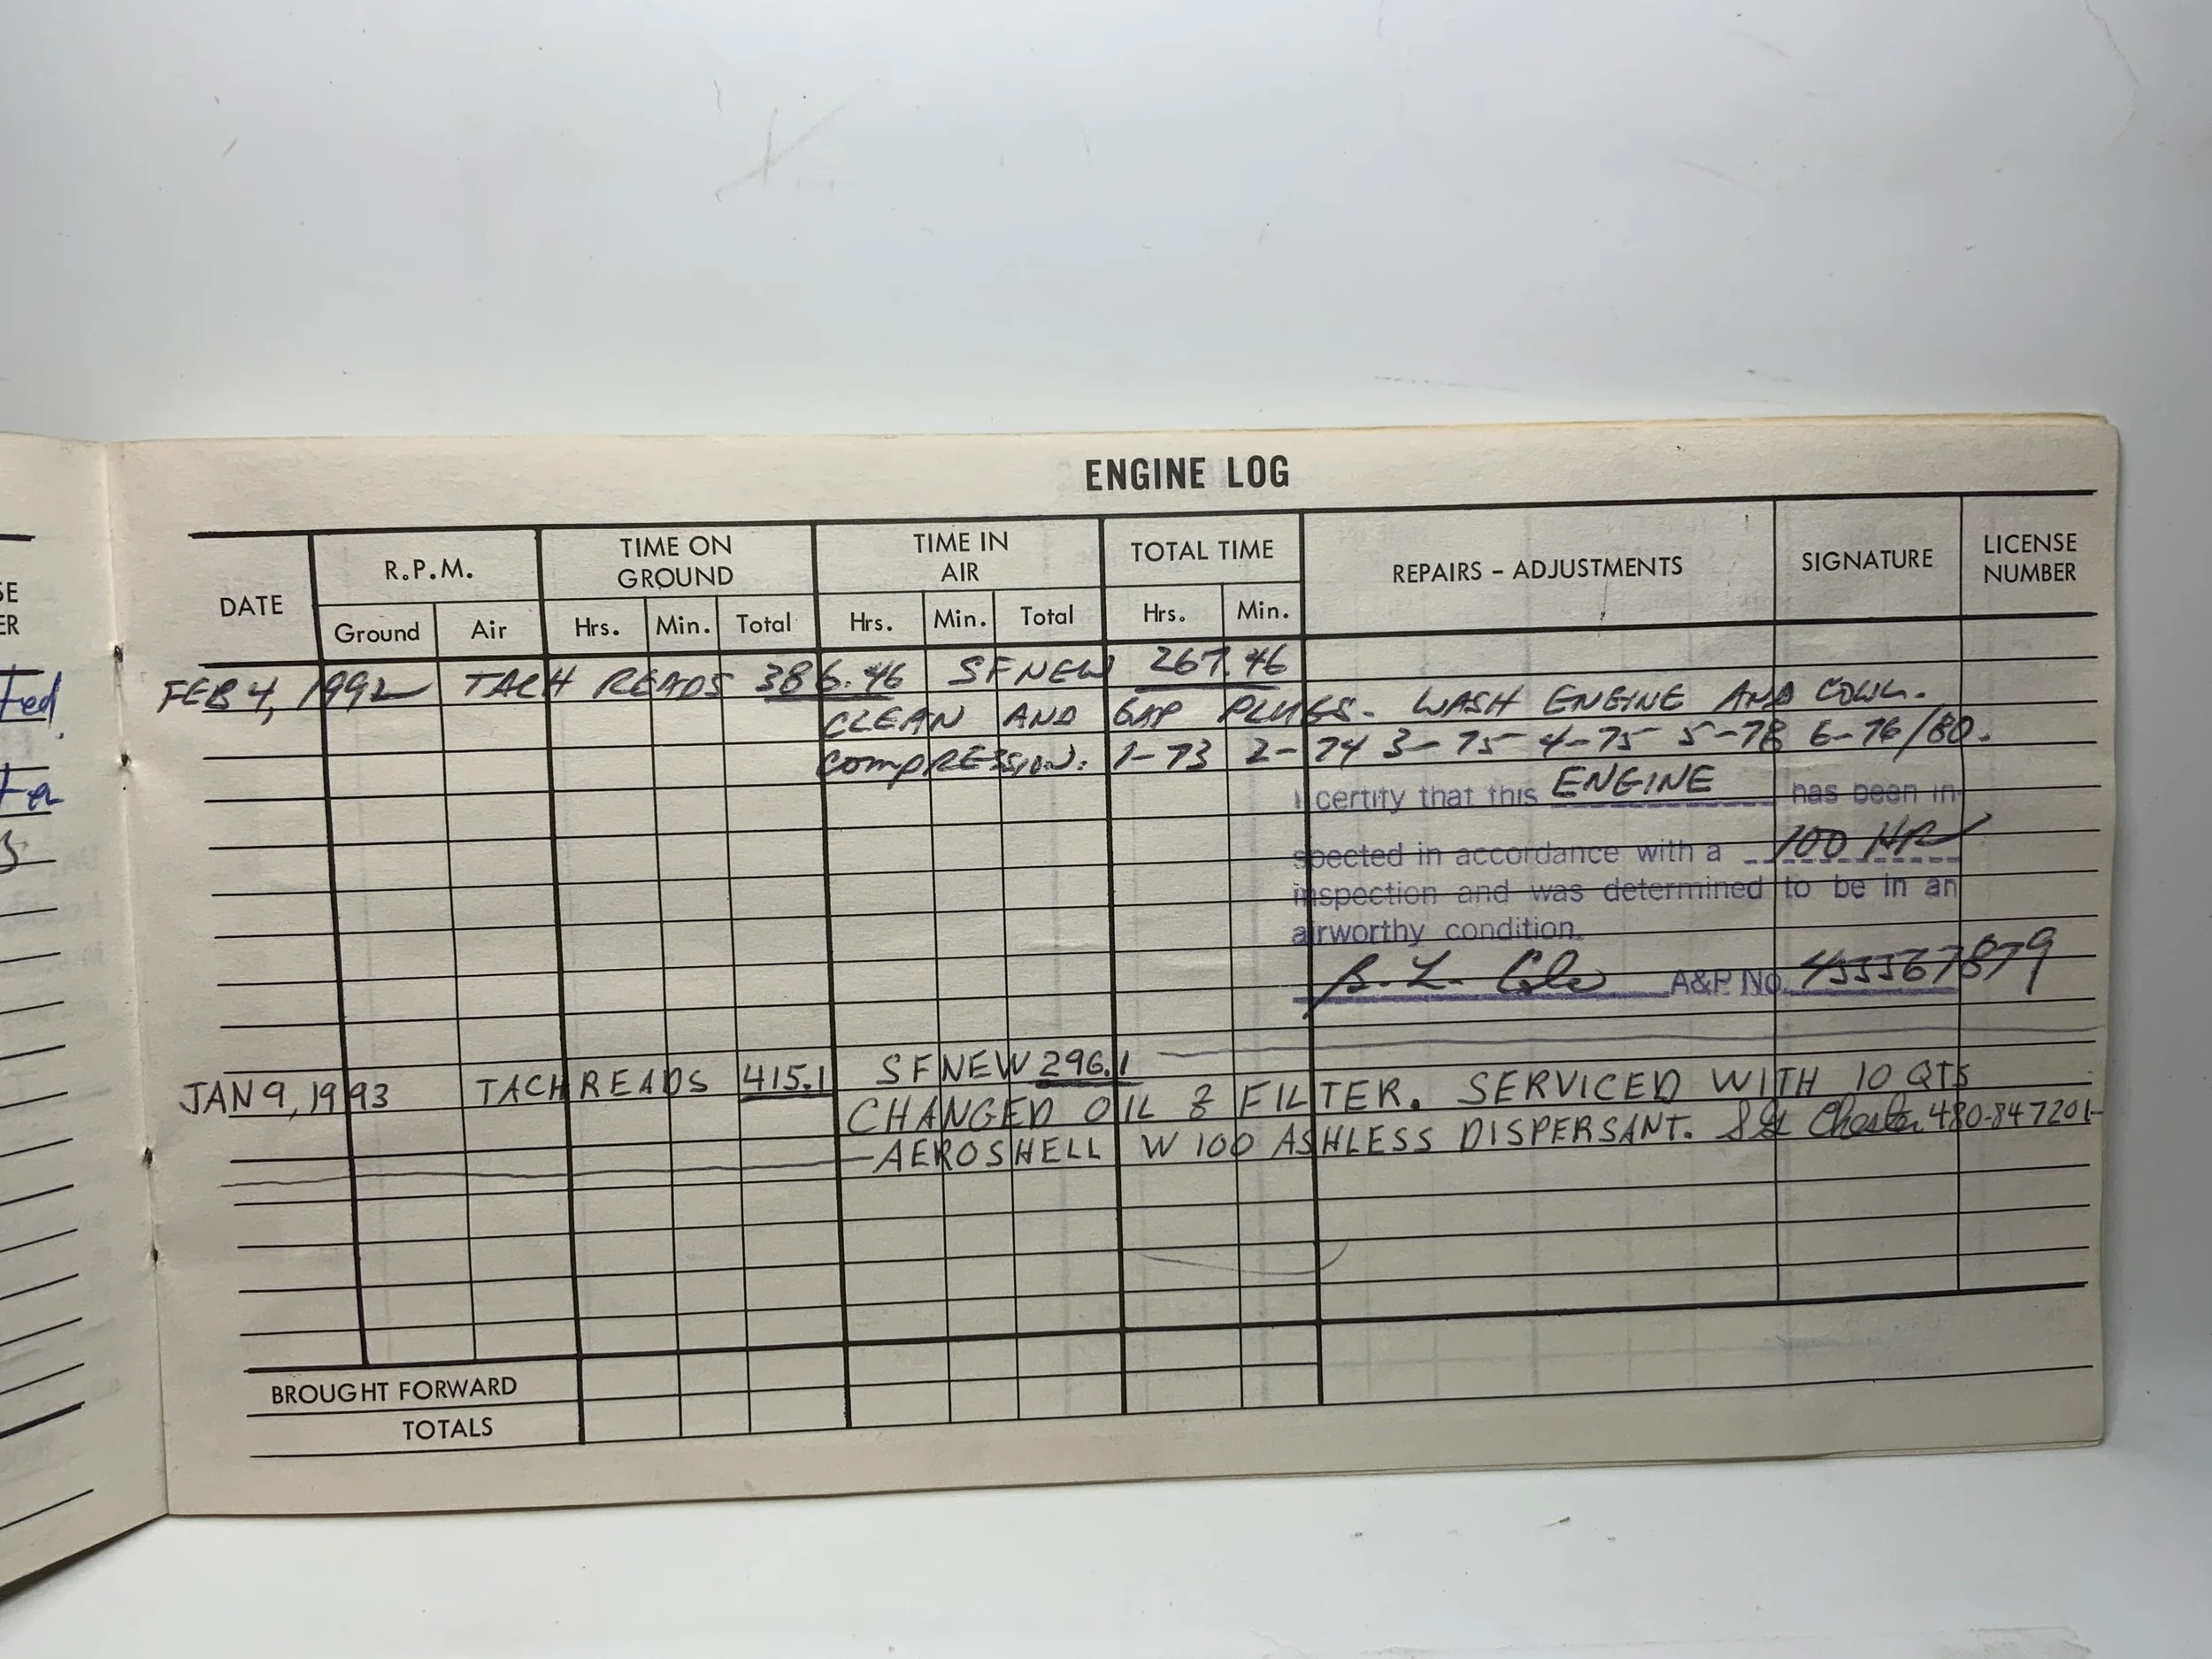 ENGINE LOG
DATE R.P.M. TIME ON GROUND TIME IN AIR TOTAL TIME REPAIRS – ADJUSTMENTS SIGNATURE LICENSE NUMBER
Ground Air Hrs. Min. Total Hrs. Min. Total Hrs. Min.
FEB 4, 1992 TACH READS 386.46 SFNEW 267.46
CLEAN AND GAP PLUGS. WASH ENGINE AND COWL.
COMPRESSION: 1-73 2-74 3-75 4-75 5-78 6-76/80.
I certify that this ENGINE has been in-
spected in accordance with a 100 HR
inspection and was determined to be in an
airworthy condition.
B. L. A&P No. 455567879
JAN 9, 1993 TACH READS 415.1 SFNEW 296.1
CHANGED OIL & FILTER. SERVICED WITH 10 QTS
AEROSHELL W 100 ASHLESS DISPERSANT. 480-847201
BROUGHT FORWARD
TOTALS